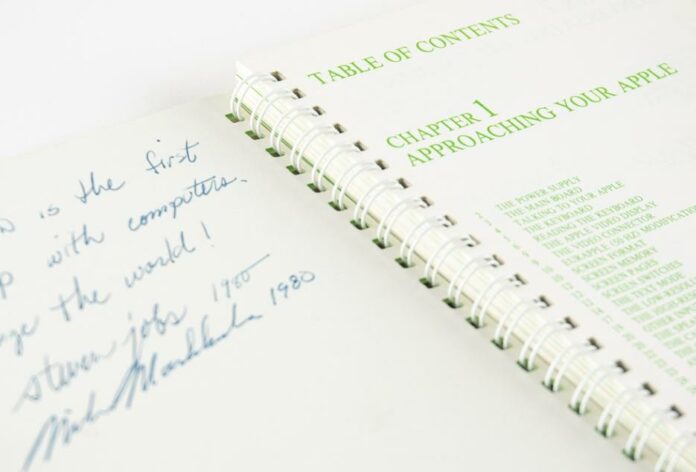 is the first
with computers.
the world!
steven jobs 1980
Mike Markkula 1980
TABLE OF CONTENTS
CHAPTER 1
APPROACHING YOUR APPLE
THE POWER SUPPLY
THE MAIN BOARD
TALKING TO YOUR APPLE
THE KEYBOARD
READING THE KEYBOARD
THE APPLE VIDEO DISPLAY
THE VIDEO CONNECTOR
EURAPPLE (50 HZ) MODIFICATION
SCREEN FORMAT
SCREEN MEMORY
SCREEN PAGES
SCREEN SWITCHES
THE TEXT MODE